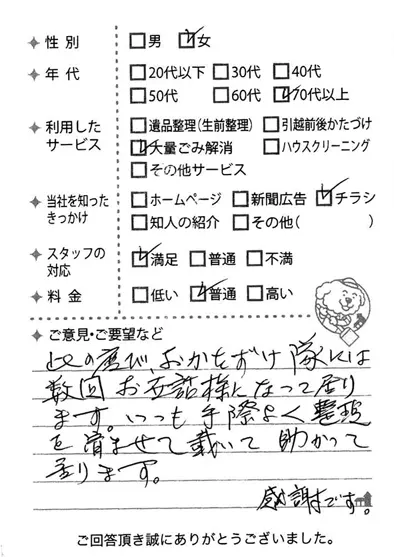 性別 □男 ☑女
年代 □20代以下 □30代 □40代
□50代 □60代 ☑70代以上
利用したサービス □遺品整理(生前整理) □引越前後かたづけ
☑大量ごみ解消 □ハウスクリーニング
□その他サービス
当社を知ったきっかけ □ホームページ □新聞広告 ☑チラシ
□知人の紹介 □その他( )
スタッフの対応 ☑満足 □普通 □不満
料金 □低い ☑普通 □高い
ご意見・ご要望など
此の度び、おかたずけ隊には
数回お世話様になって居り
ます。いつも手際よく整理
を済ませて戴いて助かって
居ります。
感謝です。
ご回答頂き誠にありがとうございました。